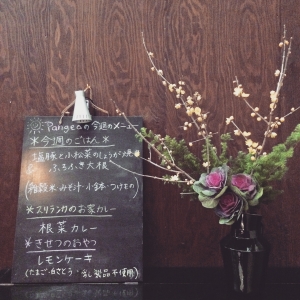 Pangeaの今週のメニュー
＊今週のごはん＊
塩豚と小松菜のしょうが焼
ふろふき大根
(雑穀米・みそ汁・小鉢・つけもの)
＊スリランカのお家カレー
根菜カレー
＊きせつのおやつ
レモンケーキ
(たまご・白さとう・乳製品不使用)